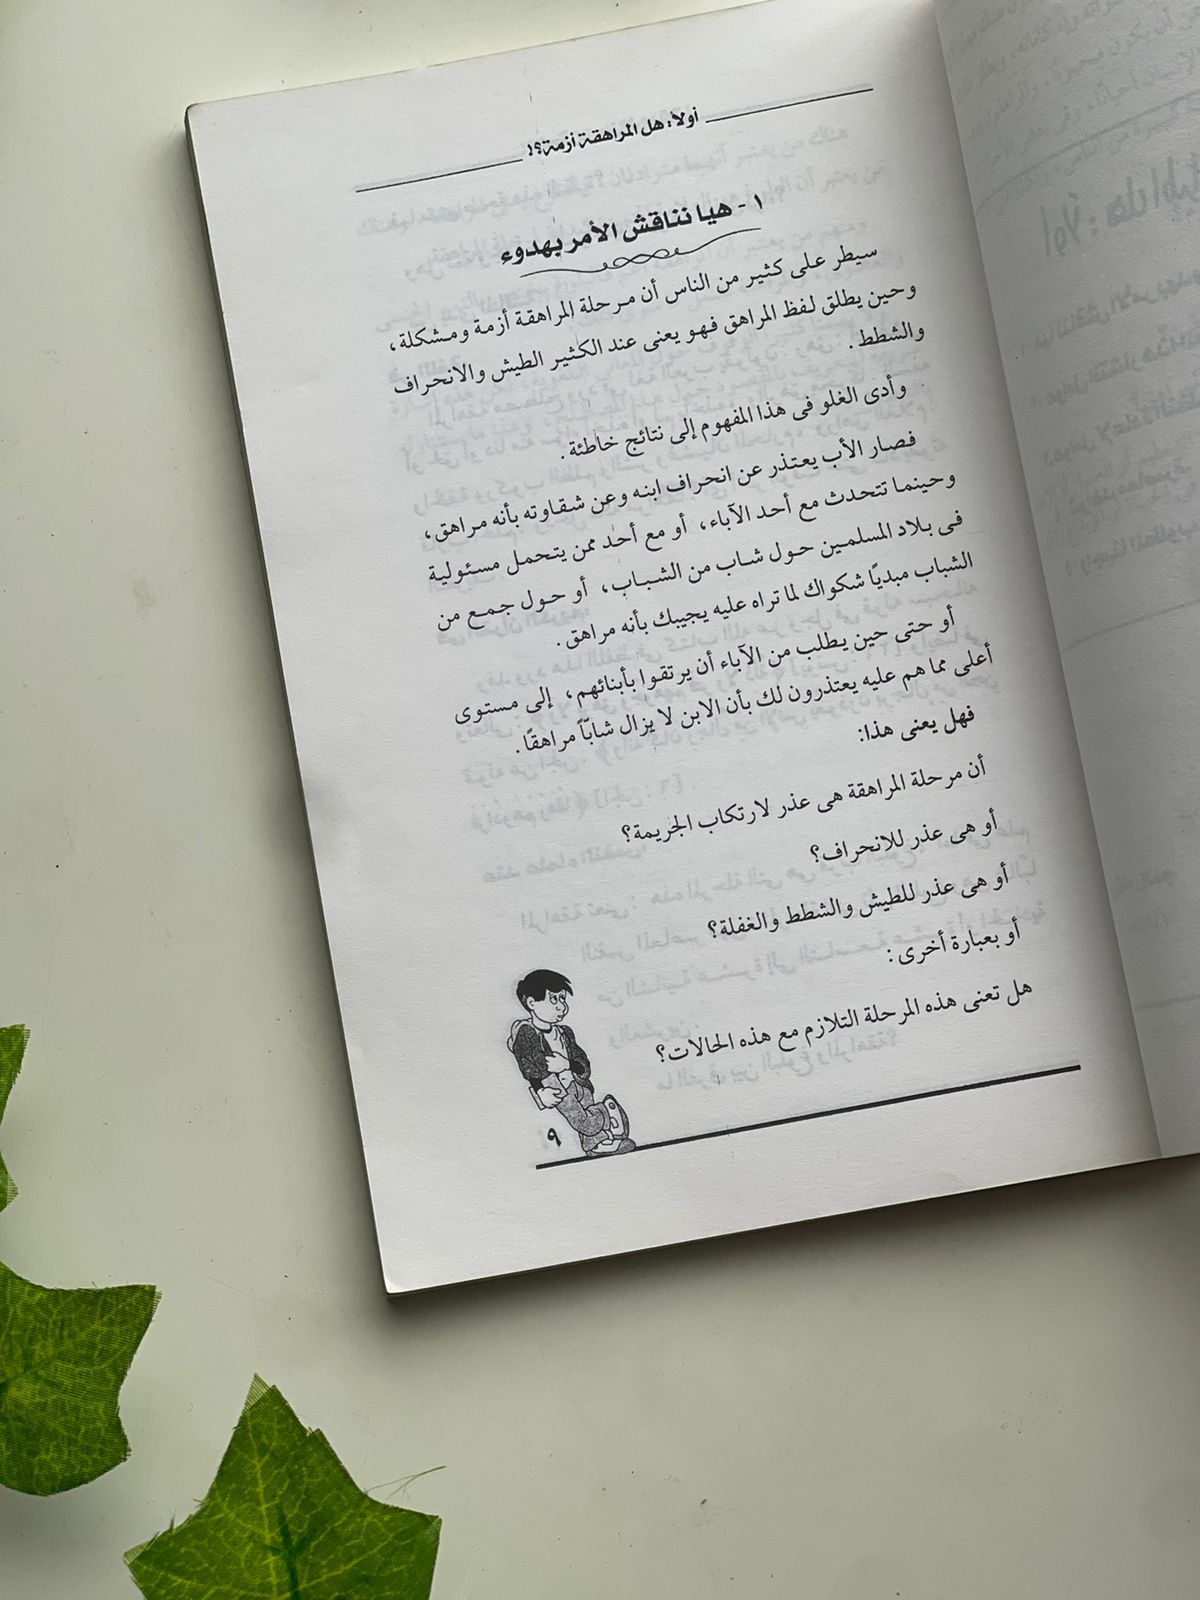 أولاً: هل المراهقة أزمة؟!
١ - هيا نناقش الأمر بهدوء
سيطر على كثير من الناس أن مرحلة المراهقة أزمة ومشكلة،
وحين يطلق لفظ المراهق فهو يعنى عند الكثير الطيش والانحراف
والشطط .
وأدى الغلو فى هذا المفهوم إلى نتائج خاطئة .
فصار الأب يعتذر عن انحراف ابنه وعن شقاوته بأنه مراهق،
وحينما تتحدث مع أحد الآباء، أو مع أحد ممن يتحمل مسئولية
فى بلاد المسلمين حول شاب من الشباب، أو حول جمع من
الشباب مبديًا شكواك لما تراه عليه يجيبك بأنه مراهق .
أو حتى حين يطلب من الآباء أن يرتقوا بأبنائهم، إلى مستوى
أعلى مما هم عليه يعتذرون لك بأن الابن لا يزال شابّاً مراهقًا .
فهل يعنى هذا:
أن مرحلة المراهقة هى عذر لارتكاب الجريمة؟
أو هى عذر للانحراف؟
أو هى عذر للطيش والشطط والغفلة؟
أو بعبارة أخرى :
هل تعنى هذه المرحلة التلازم مع هذه الحالات؟
٩